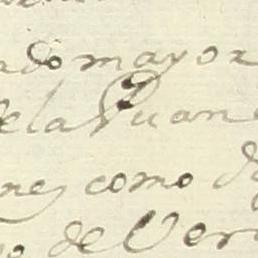 do mayor
de la Juan
nes como d
de Ver